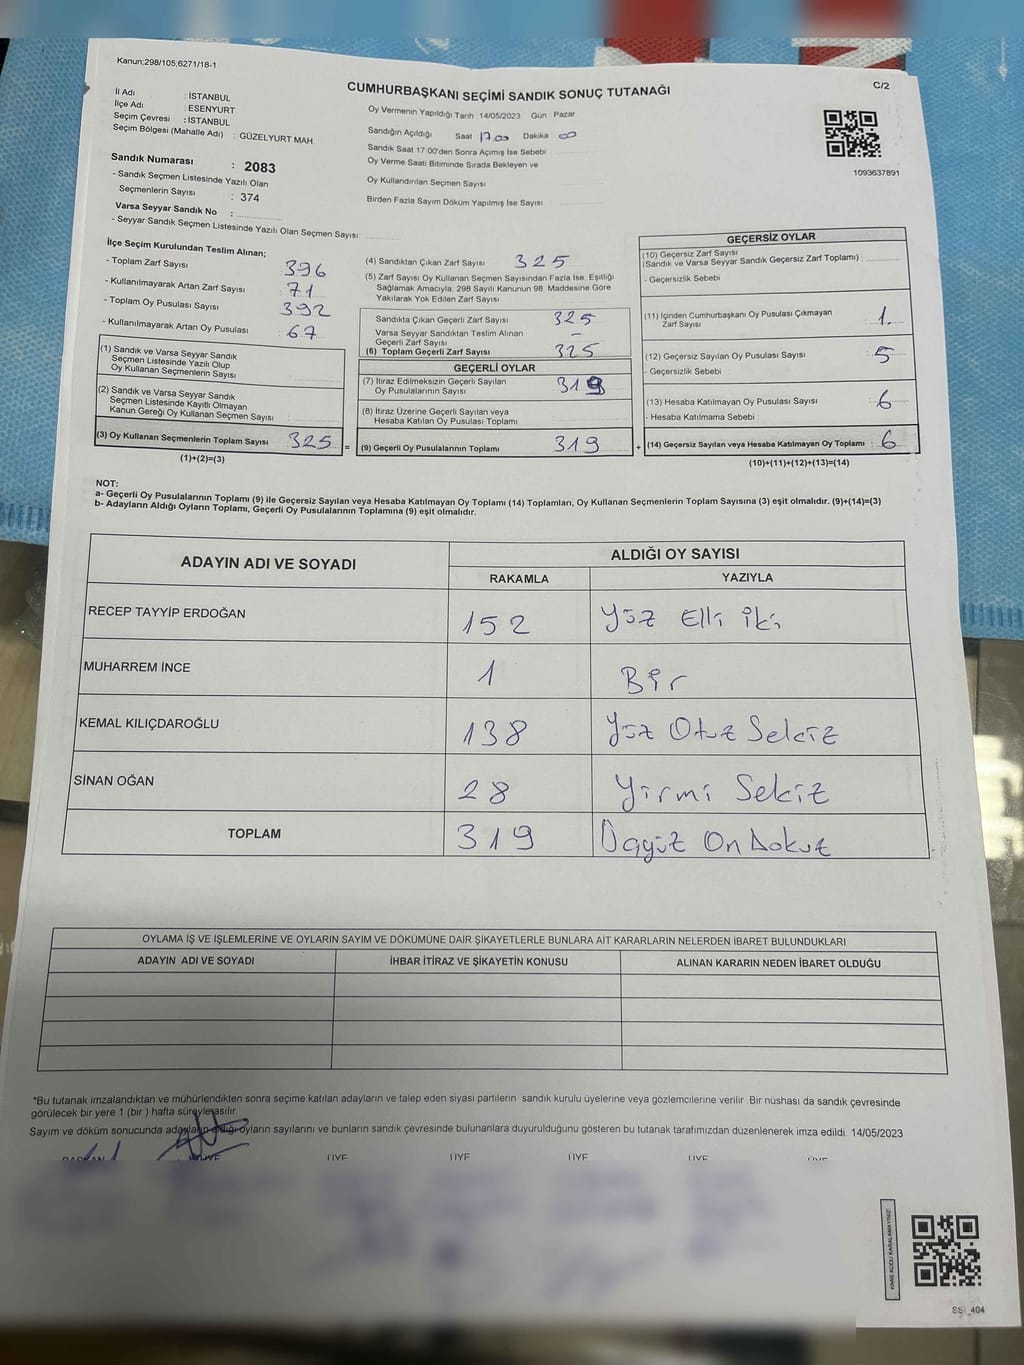 Kanun;298/105;6271/18-1
C/2
CUMHURBAŞKANI SEÇİMİ SANDIK SONUÇ TUTANAĞI
İl Adı : İSTANBUL
İlçe Adı : ESENYURT
Seçim Çevresi : İSTANBUL
Seçim Bölgesi (Mahalle Adı) : GÜZELYURT MAH
Sandık Numarası : 2083
- Sandık Seçmen Listesinde Yazılı Olan
Seçmenlerin Sayısı : 374
Varsa Seyyar Sandık No :
- Seyyar Sandık Seçmen Listesinde Yazılı Olan Seçmen Sayısı:
Oy Vermenin Yapıldığı Tarih 14/05/2023 Gün Pazar
Sandığın Açıldığı Saat 17.00 Dakika 00
Sandık Saat 17:00'den Sonra Açımış İse Sebebi
Oy Verme Saati Bitiminde Sırada Bekleyen ve
Oy Kullandırılan Seçmen Sayısı
Birden Fazla Sayım Döküm Yapılmış İse Sayısı
1093637891
İlçe Seçim Kurulundan Teslim Alınan;
- Toplam Zarf Sayısı : 396
- Kullanılmayarak Artan Zarf Sayısı : 71
- Toplam Oy Pusulası Sayısı : 392
- Kullanılmayarak Artan Oy Pusulası : 67
(1) Sandık ve Varsa Seyyar Sandık
Seçmen Listesinde Yazılı Olup
Oy Kullanan Seçmenlerin Sayısı :
(2) Sandık ve Varsa Seyyar Sandık
Seçmen Listesinde Kayıtlı Olmayan
Kanun Gereği Oy Kullanan Seçmen Sayısı :
(3) Oy Kullanan Seçmenlerin Toplam Sayısı 325 =
(1)+(2)=(3)
(4) Sandıktan Çıkan Zarf Sayısı 325
(5) Zarf Sayısı Oy Kullanan Seçmen Sayısından Fazla İse, Eşitliği
Sağlamak Amacıyla, 298 Sayılı Kanunun 98. Maddesine Göre
Yakılarak Yok Edilen Zarf Sayısı
Sandıkta Çıkan Geçerli Zarf Sayısı 325
Varsa Seyyar Sandıktan Teslim Alınan
Geçerli Zarf Sayısı –
(6) Toplam Geçerli Zarf Sayısı 325
GEÇERLİ OYLAR
(7) İtiraz Edilmeksizin Geçerli Sayılan
Oy Pusulalarının Sayısı 319
(8) İtiraz Üzerine Geçerli Sayılan veya
Hesaba Katılan Oy Pusulası Toplamı
(9) Geçerli Oy Pusulalarının Toplamı 319 +
GEÇERSİZ OYLAR
(10) Geçersiz Zarf Sayısı
(Sandık ve Varsa Seyyar Sandık Geçersiz Zarf Toplamı) :
- Geçersizlik Sebebi :
(11) İçinden Cumhurbaşkanı Oy Pusulası Çıkmayan
Zarf Sayısı : 1
(12) Geçersiz Sayılan Oy Pusulası Sayısı : 5
- Geçersizlik Sebebi :
(13) Hesaba Katılmayan Oy Pusulası Sayısı : 6
- Hesaba Katılmama Sebebi :
(14) Geçersiz Sayılan veya Hesaba Katılmayan Oy Toplamı : 6
(10)+(11)+(12)+(13)=(14)
NOT:
a- Geçerli Oy Pusulalarının Toplamı (9) ile Geçersiz Sayılan veya Hesaba Katılmayan Oy Toplamı (14) Toplamları, Oy Kullanan Seçmenlerin Toplam Sayısına (3) eşit olmalıdır. (9)+(14)=(3)
b- Adayların Aldığı Oyların Toplamı, Geçerli Oy Pusulalarının Toplamına (9) eşit olmalıdır.
ADAYIN ADI VE SOYADI ALDIĞI OY SAYISI
RAKAMLA YAZIYLA
RECEP TAYYİP ERDOĞAN 152 Yüz Elli iki
MUHARREM İNCE 1 Bir
KEMAL KILIÇDAROĞLU 138 Yüz Otuz Sekiz
SİNAN OĞAN 28 Yirmi Sekiz
TOPLAM 319 Üçyüz On Dokuz
OYLAMA İŞ VE İŞLEMLERİNE VE OYLARIN SAYIM VE DÖKÜMÜNE DAİR ŞİKAYETLERLE BUNLARA AİT KARARLARIN NELERDEN İBARET BULUNDUKLARI
ADAYIN ADI VE SOYADI İHBAR İTİRAZ VE ŞİKAYETİN KONUSU ALINAN KARARIN NEDEN İBARET OLDUĞU
*Bu tutanak imzalandıktan ve mühürlendikten sonra seçime katılan adayların ve talep eden siyasi partilerin sandık kurulu üyelerine veya gözlemcilerine verilir. Bir nüshası da sandık çevresinde
görülecek bir yere 1 (bir ) hafta süreyle asılır.
Sayım ve döküm sonucunda adayların aldığı oyların sayılarını ve bunların sandık çevresinde bulunanlara duyurulduğunu gösteren bu tutanak tarafımızdan düzenlenerek imza edildi. 14/05/2023
BAŞKAN ÜYE ÜYE ÜYE ÜYE ÜYE
KARE KODU KARALAMAYINIZ!
SSI_404